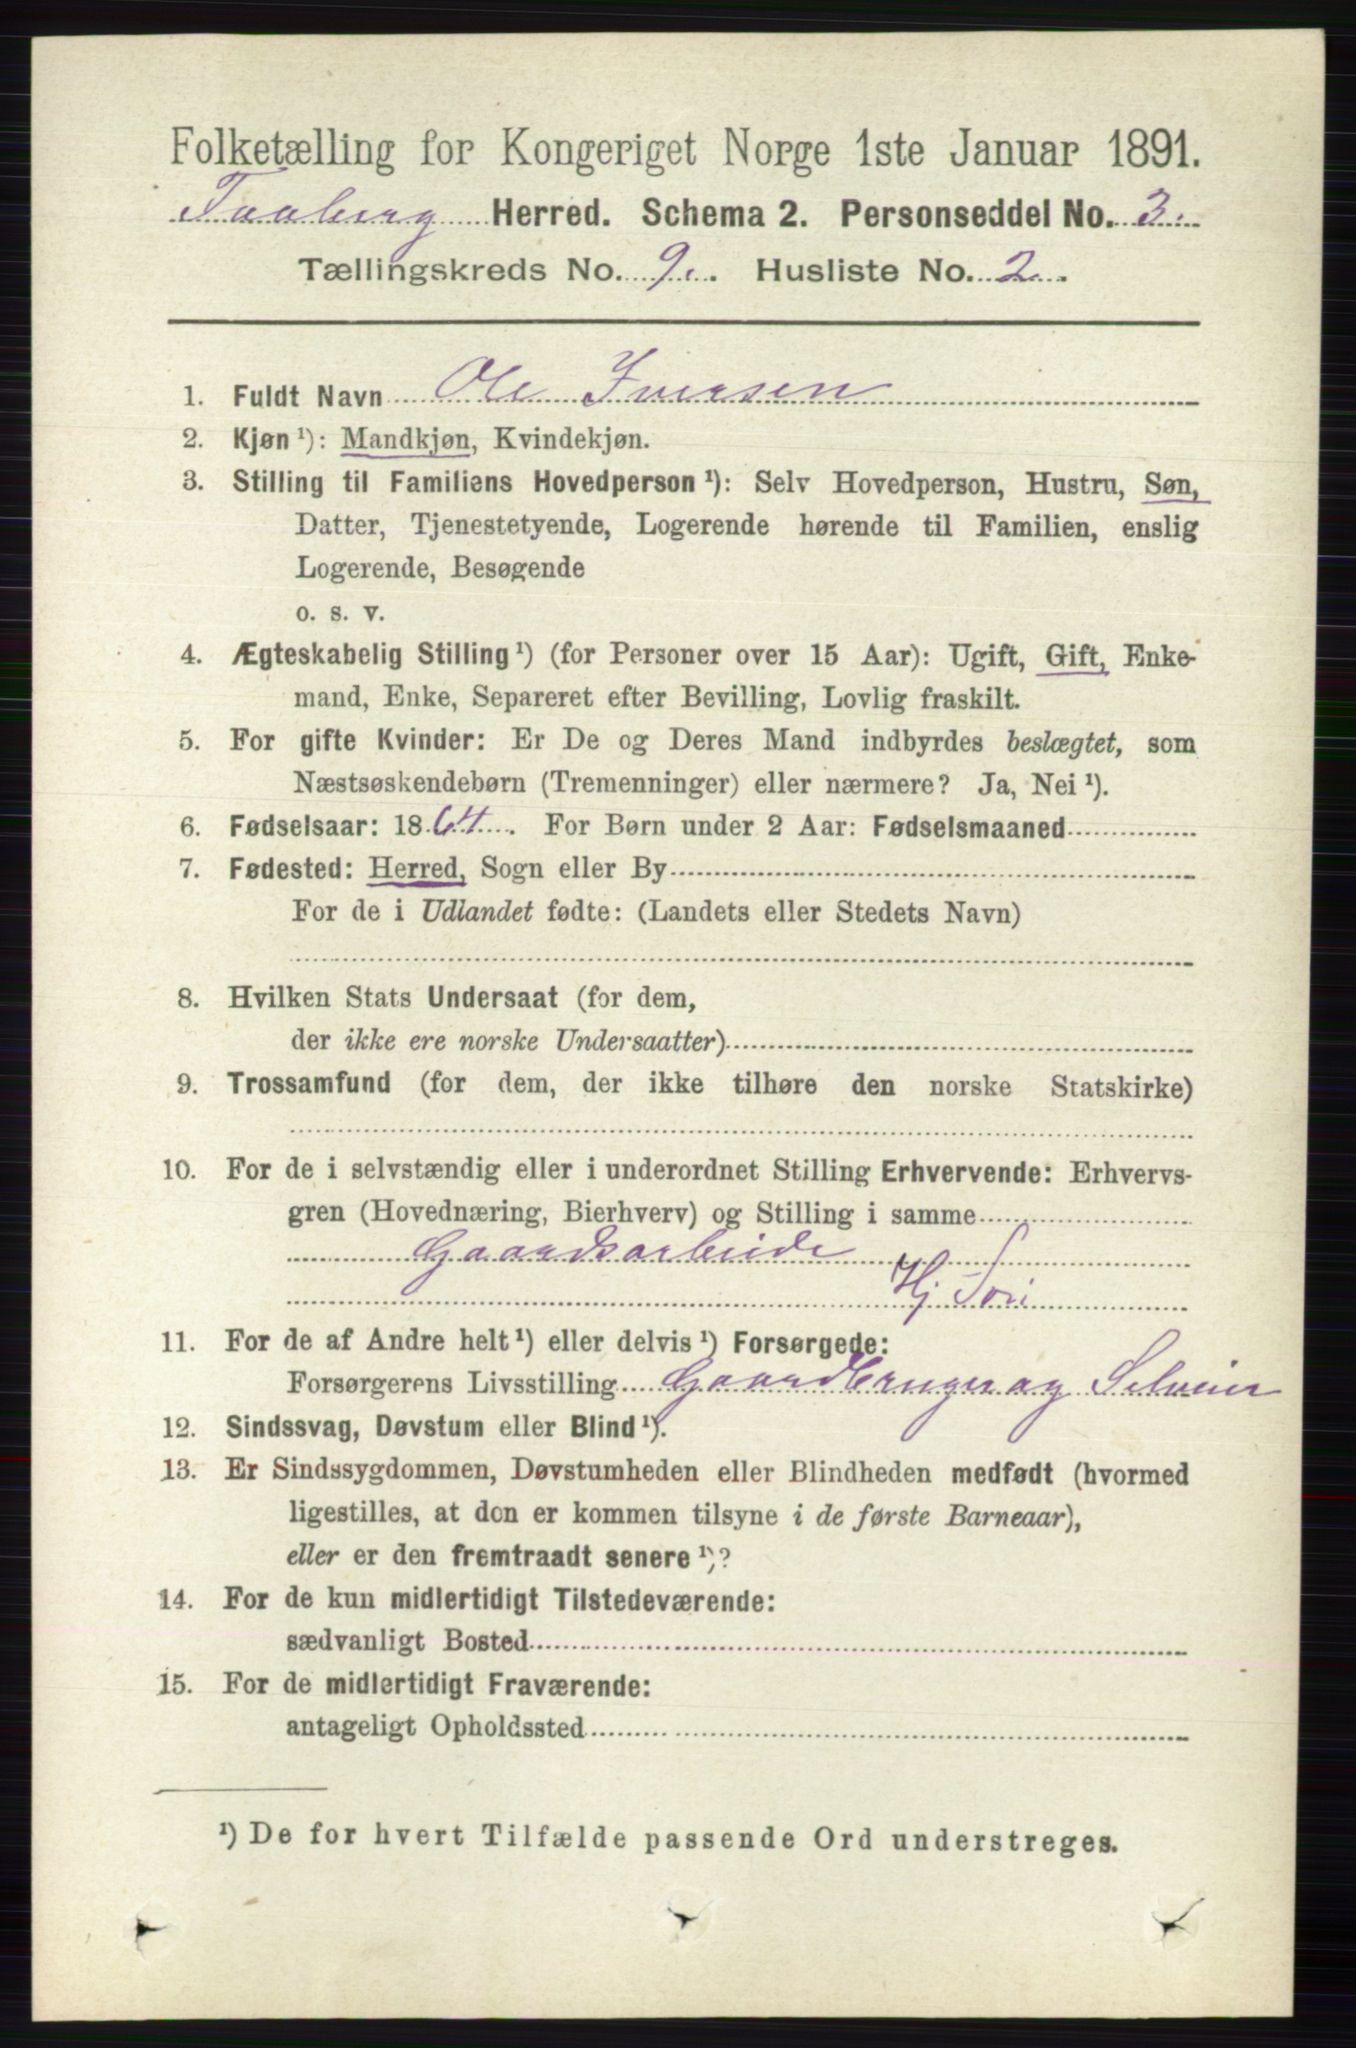 Folketælling for Kongeriget Norge 1ste Januar 1891.
Faaberg Herred. Schema 2. Personseddel No. 3.
Tællingskreds No. 9. Husliste No. 2.
1. Fuldt Navn Ole Iversen
2. Kjøn ¹): Mandkjøn, Kvindekjøn.
3. Stilling til Familiens Hovedperson ¹): Selv Hovedperson, Hustru, Søn,
Datter, Tjenestetyende, Logerende hørende til Familien, enslig
Logerende, Besøgende
o. s. v.
4. Ægteskabelig Stilling ¹) (for Personer over 15 Aar): Ugift, Gift, Enke-
mand, Enke, Separeret efter Bevilling, Lovlig fraskilt.
5. For gifte Kvinder: Er De og Deres Mand indbyrdes beslægtet, som
Næstsøskendebørn (Tremenninger) eller nærmere? Ja, Nei ¹).
6. Fødselsaar: 1864. For Børn under 2 Aar: Fødselsmaaned
7. Fødested: Herred, Sogn eller By
For de i Udlandet fødte: (Landets eller Stedets Navn)
8. Hvilken Stats Undersaat (for dem,
der ikke ere norske Undersaatter)
9. Trossamfund (for dem, der ikke tilhøre den norske Statskirke)
10. For de i selvstændig eller i underordnet Stilling Erhvervende: Erhvervs-
gren (Hovednæring, Bierhverv) og Stilling i samme
Gaardsarbeide
Hj Søn
11. For de af Andre helt ¹) eller delvis ¹) Forsørgede:
Forsørgerens Livsstilling Gaardbruger og Selveier
12. Sindssvag, Døvstum eller Blind ¹).
13. Er Sindssygdommen, Døvstumheden eller Blindheden medfødt (hvormed
ligestilles, at den er kommen tilsyne i de første Barneaar),
eller er den fremtraadt senere ¹)?
14. For de kun midlertidigt Tilstedeværende:
sædvanligt Bosted
15. For de midlertidigt Fraværende:
antageligt Opholdssted
¹) De for hvert Tilfælde passende Ord understreges.